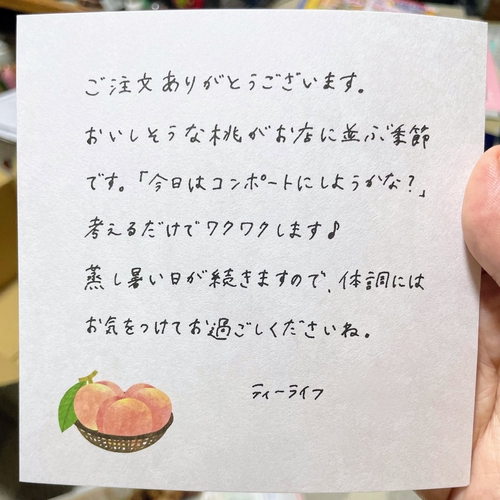 ご注文ありがとうございます。
おいしそうな桃がお店に並ぶ季節
です。「今日はコンポートにしようかな？」
考えるだけでワクワクします♪
蒸し暑い日が続きますので、体調には
お気をつけてお過ごしくださいね。
ティーライフ